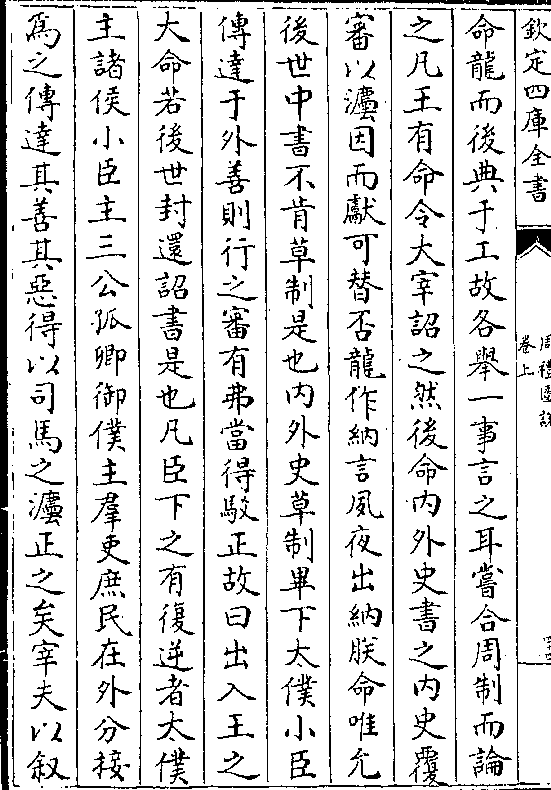 欽定四庫全書
周禮圖說
卷上
命龍而後典于工故各舉一事言之耳嘗合周制而論
之凡王有命令大宰詔之然後命内外史書之内史覆
審以灋因而獻可替否龍作納言夙夜出納朕命唯允
後世中書不肯草制是也内外史草制畢下太僕小臣
傳達于外善則行之審有弗當得駁正故曰出入王之
大命若後世封還詔書是也凡臣下之有復逆者太僕
主諸侯小臣主三公孤卿御僕主羣吏庶民在外分接
焉之傳達其善其惡得以司馬之灋正之矣宰夫以叙